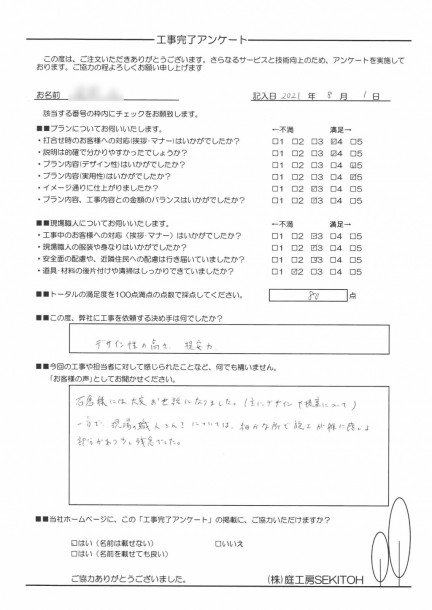 工事完了アンケート
この度は、ご注文いただきありがとうございます。さらなるサービスと技術向上のため、アンケートを実施して
おります。ご協力の程よろしくお願い申し上げます
お名前 記入日 2021 年 8 月 1 日
該当する番号の枠内にチェックをお願致します。
■■プランについてお伺いいたします。 ←不満 満足→
・打合せ時のお客様への対応(挨拶・マナー)はいかがでしたか? □1 □2 □3 ☑4 □5
・説明は的確で分かりやすかったでしょうか? □1 □2 □3 ☑4 □5
・プラン内容(デザイン性)はいかがでしたか? □1 □2 □3 □4 ☑5
・プラン内容(実用性)はいかがでしたか? □1 □2 □3 □4 ☑5
・イメージ通りに仕上がりましたか? □1 □2 ☑3 □4 □5
・プラン内容、工事内容との金額のバランスはいかがですか? □1 □2 ☑3 □4 □5
■■現場職人についてお伺いいたします。 ←不満 満足→
・工事中のお客様への対応(挨拶・マナー)はいかがでしたか? □1 □2 ☑3 □4 □5
・現場職人の服装や身なりはいかがでしたか? □1 □2 ☑3 □4 □5
・安全面の配慮や、近隣住民への配慮は行き届いていましたか? □1 □2 ☑3 □4 □5
・道具・材料の後片付けや清掃はしっかりできていましたか? □1 ☑2 □3 □4 □5
■■トータルの満足度を100点満点の点数で採点してください。 80 点
■■この度、弊社に工事を依頼する決め手は何でしたか?
デザイン性の高さ 提案力
■■今回の工事や担当者に対して感じられたことなど、何でも構いません。
「お客様の声」としてお聞かせください。
様には大変お世話になりました。(主にデザインや提案について)
一方で、現場の職人さんについては、細かな所で施工が雑に感じる
部分があり、残念でした。
■■当社ホームページに、この「工事完了アンケート」の掲載に、ご協力いただけますか?
☑はい(名前は載せない) □いいえ
□はい(名前を載せても良い)
ご協力ありがとうございました。 (株)庭工房SEKITOH